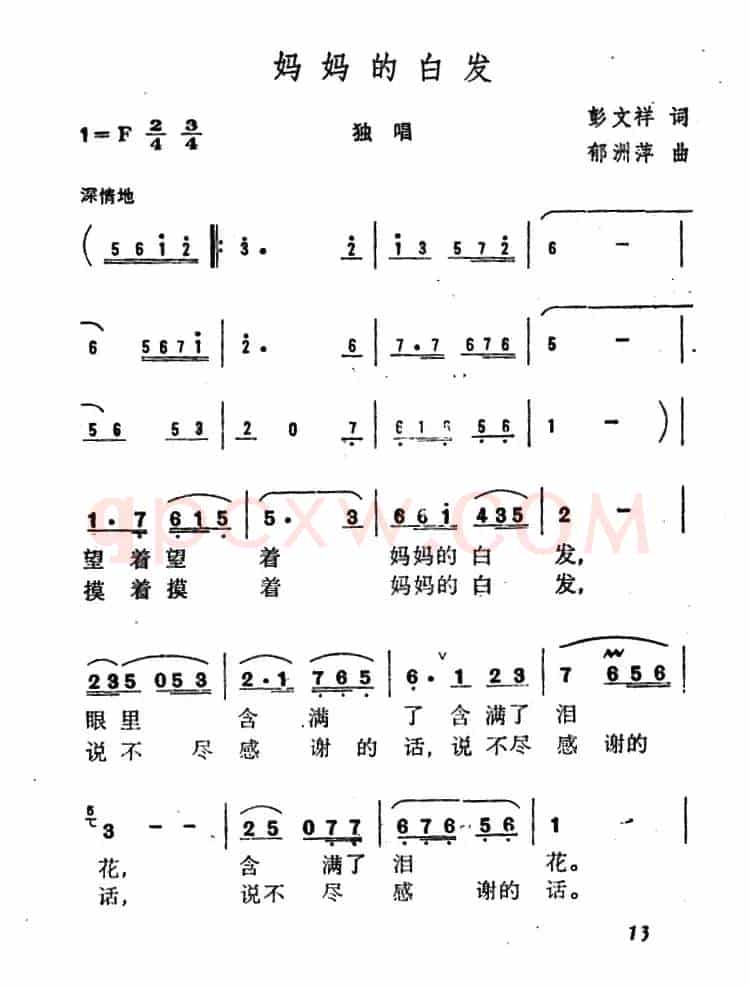 妈妈的白发
1=F 2/4 3/4 独唱 彭文祥 词
郁洲萍 曲
深情地
( 5 6 1 2 ‖: 3 · 2 | 1 3 5 7 2 | 6 - |
6 5 6 7 1 | 2 · 6 | 7 · 7 6 7 6 | 5 - |
5 6 5 3 | 2 0 7 | 6 1 6 5 6 | 1 - ) |
1 · 7 6 1 5 | 5 · 3 | 6 6 1 4 3 5 | 2 - |
望着望 着 妈妈的白 发,
摸着摸 着 妈妈的白 发,
qpcxw.COM
2 3 5 0 5 3 | 2 · 1 7 6 5 | 6 · 1 2 3 | 7 6 5 6 |
眼里 含 满 了含满了泪
说不 尽感 谢的话,说不尽感谢的
5 3 - - | 2 5 0 7 7 | 6 7 6 5 6 | 1 - |
花, 含 满了泪 花。
话, 说不 尽 感 谢的话。
13